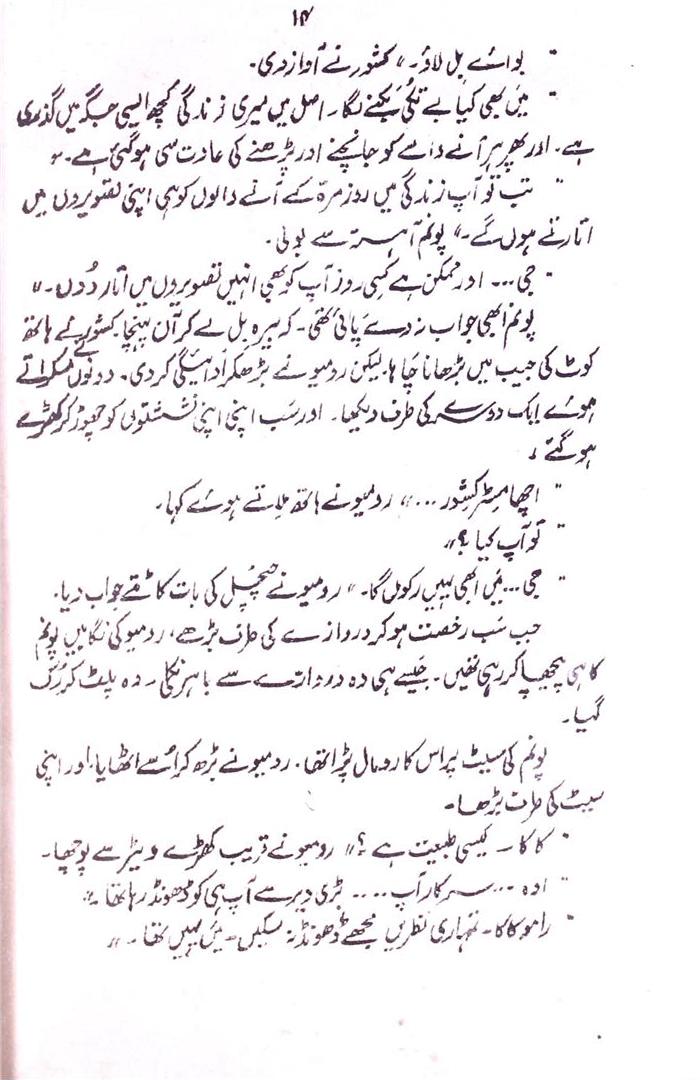 ۱۴
" بوائے بل لاؤ۔" کشور نے آواز دی۔
" میں بھی کیا بے تکی بکنے لگا۔ اصل میں میری زندگی کچھ ایسی جگہ میں گذری
ہے۔ اور پھر ہر آنے والے کو جانچنے اور پڑھنے کی عادت سی ہو گئی ہے۔"
" تب تو آپ زندگی میں روزمرہ کے آنے والوں کو ہی اپنی تصویروں میں
اتارتے ہوں گے۔" پونم آہستہ سے بولی۔
" جی... اور ممکن ہے کسی روز آپ کو بھی انہیں تصویروں میں اتار دوں۔"
پونم ابھی جواب نہ دے پائی تھی۔ کہ بیرہ بل لے کر آن پہنچا۔ کشور نے ہاتھ
کوٹ کی جیب میں بڑھانا چاہا، لیکن رومیو نے بڑھکر ادائیگی کر دی۔ دونوں نے مسکراتے
ہوئے ایک دوسرے کی طرف دیکھا۔ اور سب اپنی اپنی نشستوں کو چھوڑ کر کھڑے
ہو گئے۔
" اچھا مسٹر کشور ..." رومیو نے ہاتھ ملاتے ہوئے کہا۔
" تو آپ کیا ؟"
" جی... میں ابھی یہیں رکوں گا۔" رومیو نے چنچل کی بات کاٹتے جواب دیا۔
جب سب رخصت ہو کر دروازے کی طرف بڑھے، رومیو کی نگاہیں پونم
کا ہی پیچھا کر رہی تھیں۔ جیسے ہی وہ دروازے سے باہر نکلی۔ وہ پلٹ کر رک
گیا۔
پونم کی سیٹ پر اس کا رومال پڑا تھا۔ رومیو نے بڑھ کر اسے اٹھایا، اور اپنی
سیٹ کی طرف بڑھا۔
" کاکا۔ کیسی طبیعت ہے ؟" رومیو نے قریب کھڑے ویٹر سے پوچھا۔
" اوہ ... سرکار آپ .... بڑی دیر سے آپ ہی کو ڈھونڈ رہا تھا۔"
" رامو کاکا۔ تمہاری نظریں مجھے ڈھونڈ نہ سکیں۔ میں یہیں تھا۔"